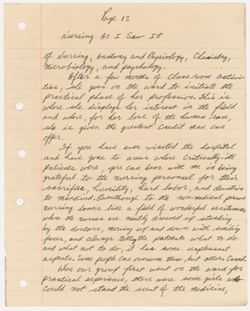 Page 12
Nursing As I Saw It
of Nursing, Anatomy and Physiology, Chemistry,
Microbiology, and psychology.
After a few months of class-room activi-
ties, she goes on the ward to initiate the
practical phase of her profession. This is
where she displays her interest in the field
and where, for her love of the human race,
she is given the greatest credit man can
offer.
If you have ever visited the hospital
and have gone to areas where critically-ill
patients were, you can bear with me in being
grateful to the nursing personnel for their
sacrifice, humility, hard labor, and devotion
to mankind. Even though to the non-medical person
nursing looks like a field of wonderful excitement
when the nurses are neatly dressed up standing
by the doctors, moving up and down with smiling
faces, and always telling patients what to do
and what not to do, it has some unpleasant
aspects. Some people can overcome them, but others cannot.
When our group first went on the ward for
practical experience, there were some girls who
could not stand the scent of the medicine,